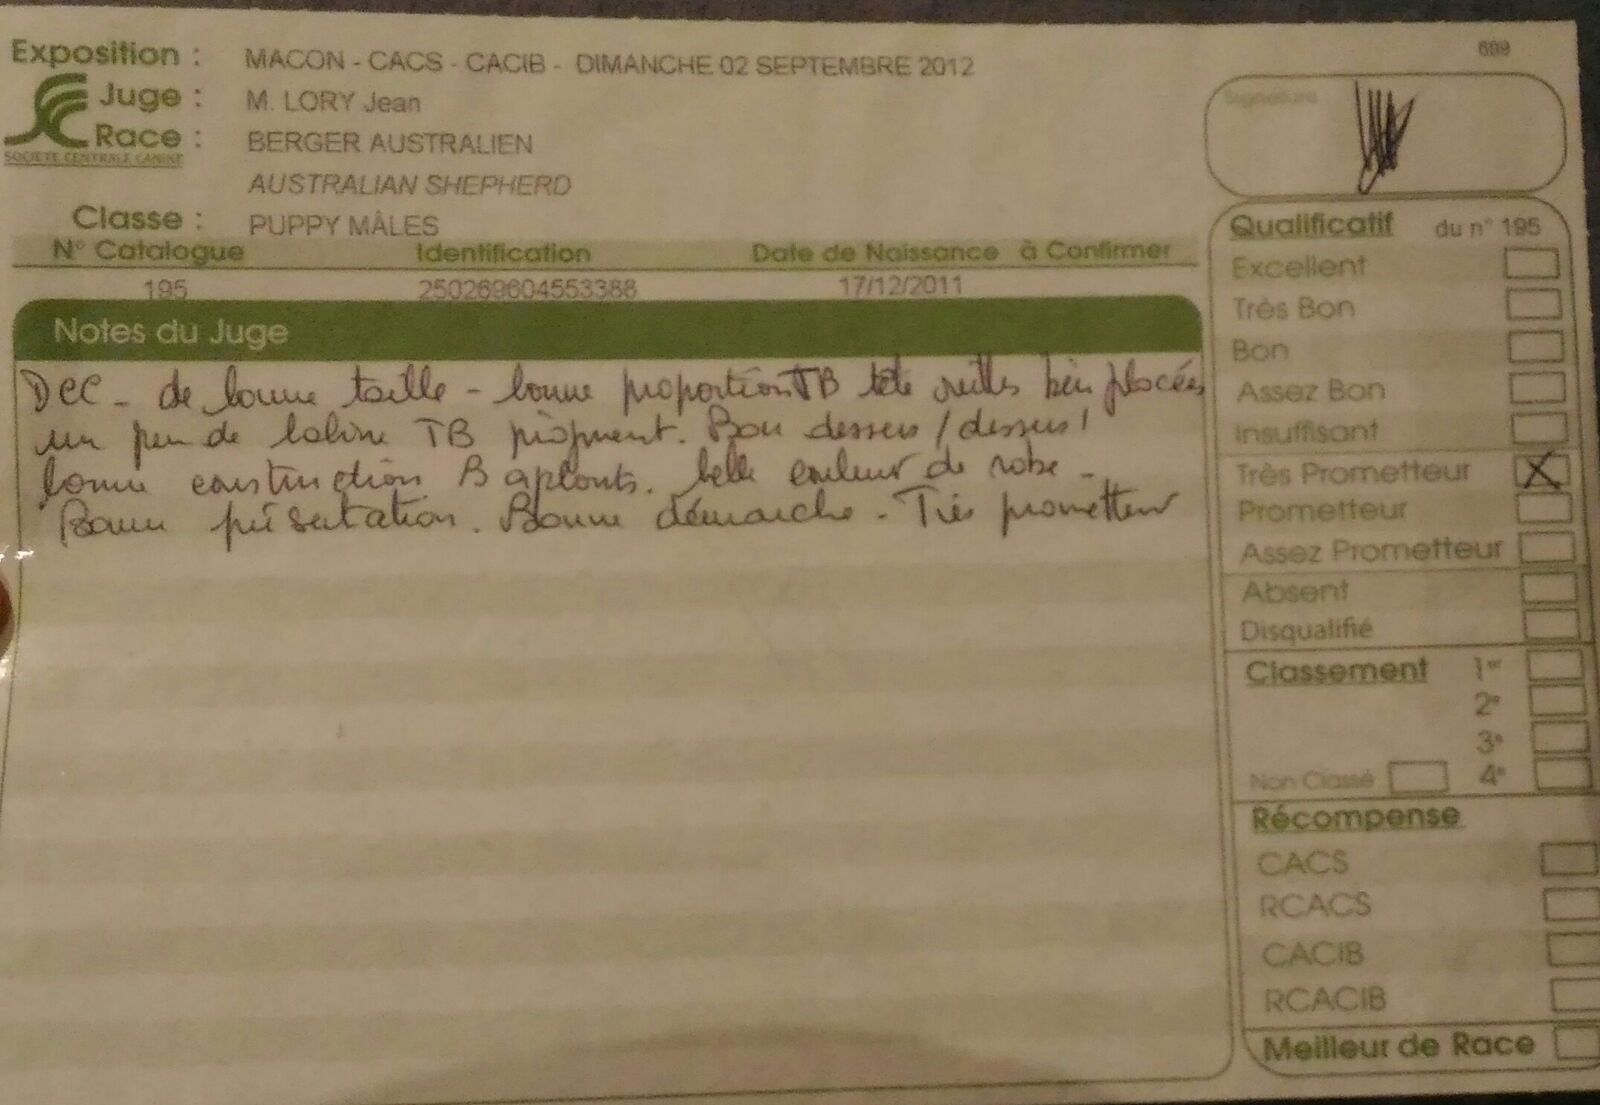 699
Exposition : MACON - CACS - CACIB - DIMANCHE 02 SEPTEMBRE 2012
Juge : M. LORY Jean
Race : BERGER AUSTRALIEN
SOCIETE CENTRALE CANINE
AUSTRALIAN SHEPHERD
Classe : PUPPY MÂLES
N° Catalogue Identification Date de Naissance à Confirmer
195 250269604553388 17/12/2011
Notes du Juge
DCC - de bonne taille - bonne proportion TB tête bien placées
un peu de TB pigment. Bon dessus / dessus
bonne construction B aplombs. belle couleur de robe -
Bonne présentation. Bonne démarche - Très prometteur
Signature
Qualificatif du n° 195
Excellent
Très Bon
Bon
Assez Bon
Insuffisant
Très Prometteur X
Prometteur
Assez Prometteur
Absent
Disqualifié
Classement 1er
2e
3e
Non Classé 4e
Récompense
CACS
RCACS
CACIB
RCACIB
Meilleur de Race